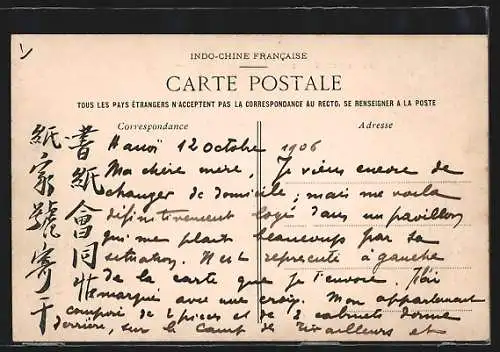 INDO-CHINE FRANÇAISE
CARTE POSTALE
TOUS LES PAYS ÉTRANGERS N'ACCEPTENT PAS LA CORRESPONDANCE AU RECTO, SE RENSEIGNER A LA POSTE
Correspondance
Adresse
書紙會同
紙家號寄干
Hanoï 12 octobre 1906
Ma chère mère, Je viens encore de
changer de domicile; mais me voila
définitivement logé dans un pavillon
qui me plait beaucoup par sa
situation. Il est represente à gauche
de la carte que je t'envoie. J'ai
marqué avec une croix. Mon appartement
composé de 2 pieces et de 2 cabinets donne
derrière, sur le Camp de Tirailleurs et